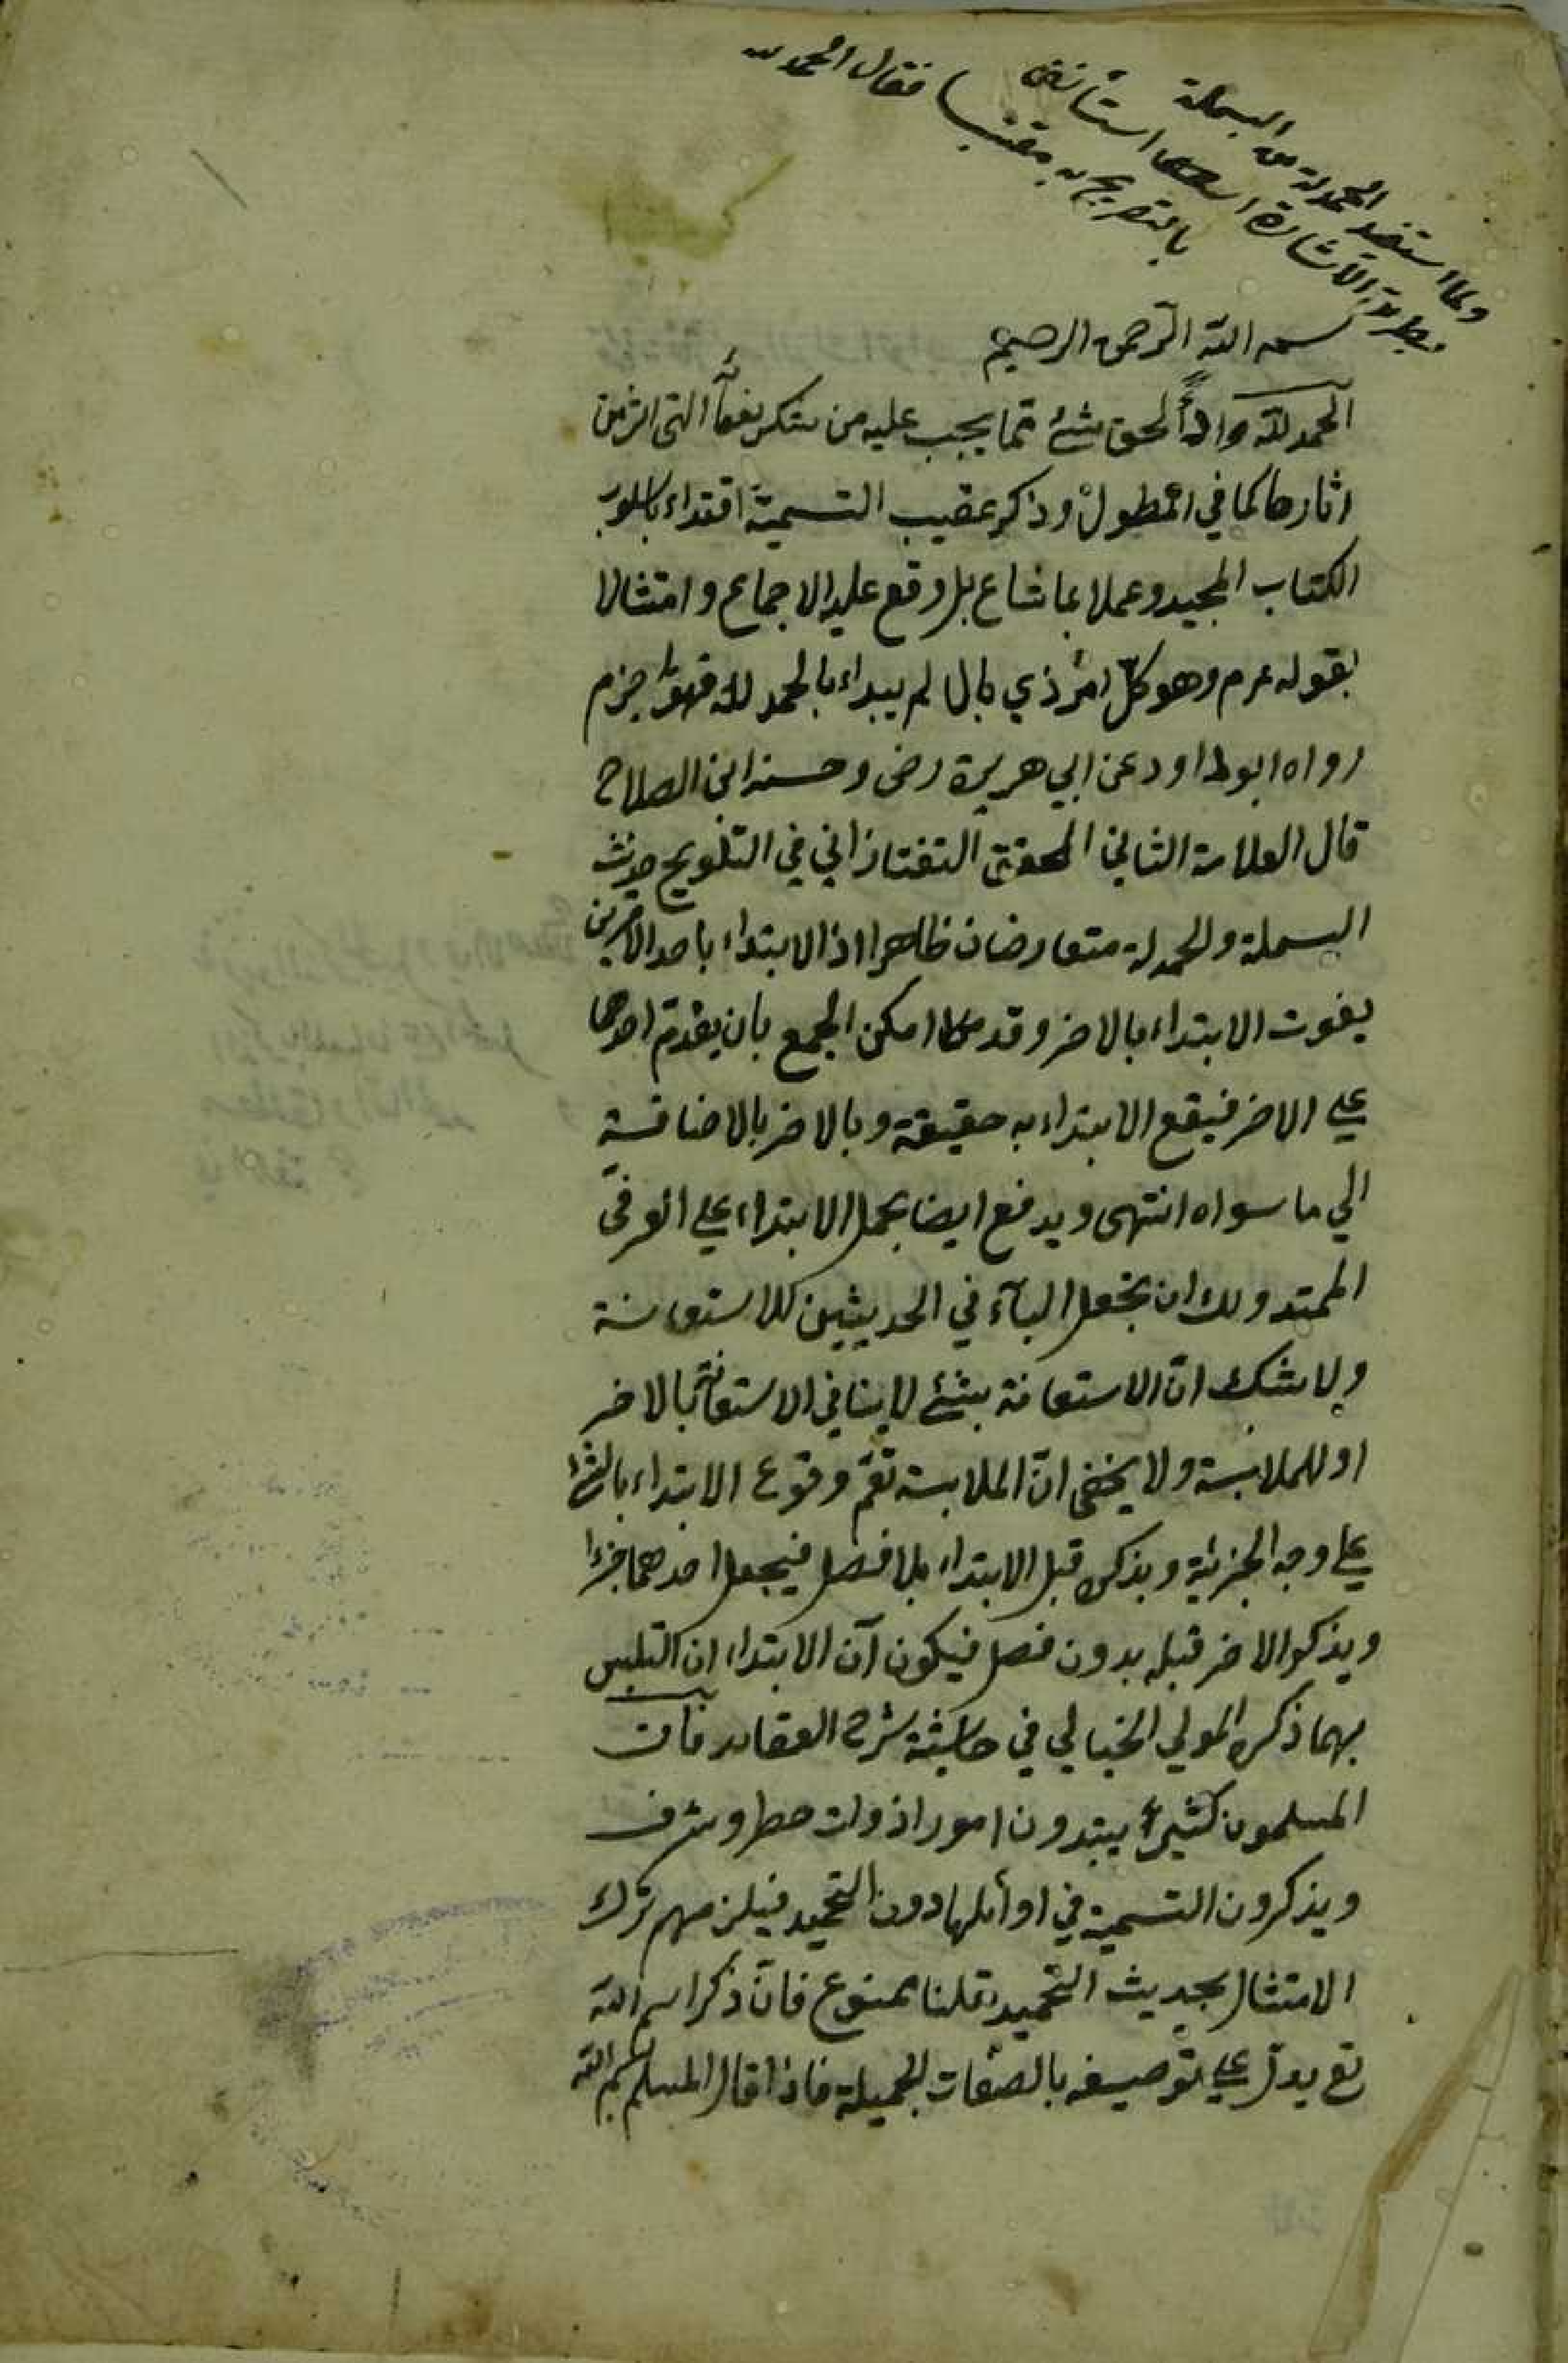 ولما استفيد الحمدلة من البسملة
بطريق الاشارة استأنف
بالتصريح به مقتبسا فقال الحمد لله
بسم الله الرحمن الرحيم
الحمد لله اداءً لحق شئ مما يجب عليه من شكر نعمائه التى
اثارها كما في المطول وذكر عقيب التسمية اقتداء باسلوب
الكتاب المجيد وعملا بما شاع بل وقع عليه الاجماع وامتثالا
بقوله عرم وهو كلّ امر ذي بال لم يبداء بالحمد لله فهو اجزم
رواه ابو داود عن ابي هريرة رضى وحسنه ابن الصلاح
قال العلامة الثاني المحقق التفتازاني في التلويح حديث
البسملة والحمدلة متعارضان ظاهرا اذ الابتداء باحد الامرين
يفوت الابتداء بالاخر وقد امكن الجمع بان يقدم احدهما
علي الاخر فيقع الابتداء به حقيقة وبالاخر بالاضافة
الي ما سواه انتهى ويدفع ايضا بحمل الابتداء علي العرفي
الممتد ولك ان تجعل البآء في الحديثين للاستعانة
ولا شك انّ الاستعانة بشئ لا ينافي الاستعانة بالاخر
او للملابسة ولا يخفى انّ الملابسة تعمّ وقوع الابتداء بالشئ
علي وجه الجزئية وبذكره قبل الابتداء بلا فصل فيجعل احدهما جزءا
ويذكر الاخر قبله بدون فصل فيكون آن الابتداء ان التلبس
بهما ذكره المولي الخيالي في حاشية شرح العقايد فان قلت
المسلمون كثيرا يبتدون امورا ذوات خطر وشرف
ويذكرون التسمية في اوائلها دون التحميد فيلزمهم ترك
الامتثال بحديث التحميد قلنا ممنوع فانّ ذكر اسم الله
تع يدل علي توصيفه بالصفات الجميلة فاذا قال المسلم بسم الله